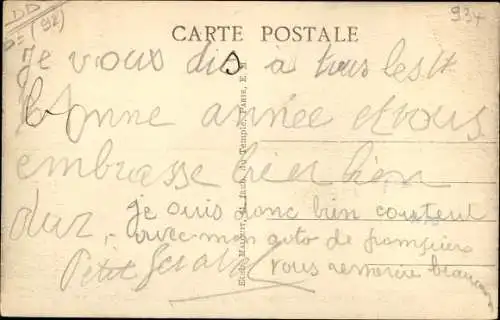 DD
(92)
937
CARTE POSTALE
Je vous dis à tous les
bonne année et vous
embrasse bien bien
dur,
je suis donc bien content
avec mon auto de pompiers
Petit Gérard
vous remercie beaucoup
Paris, E. M.